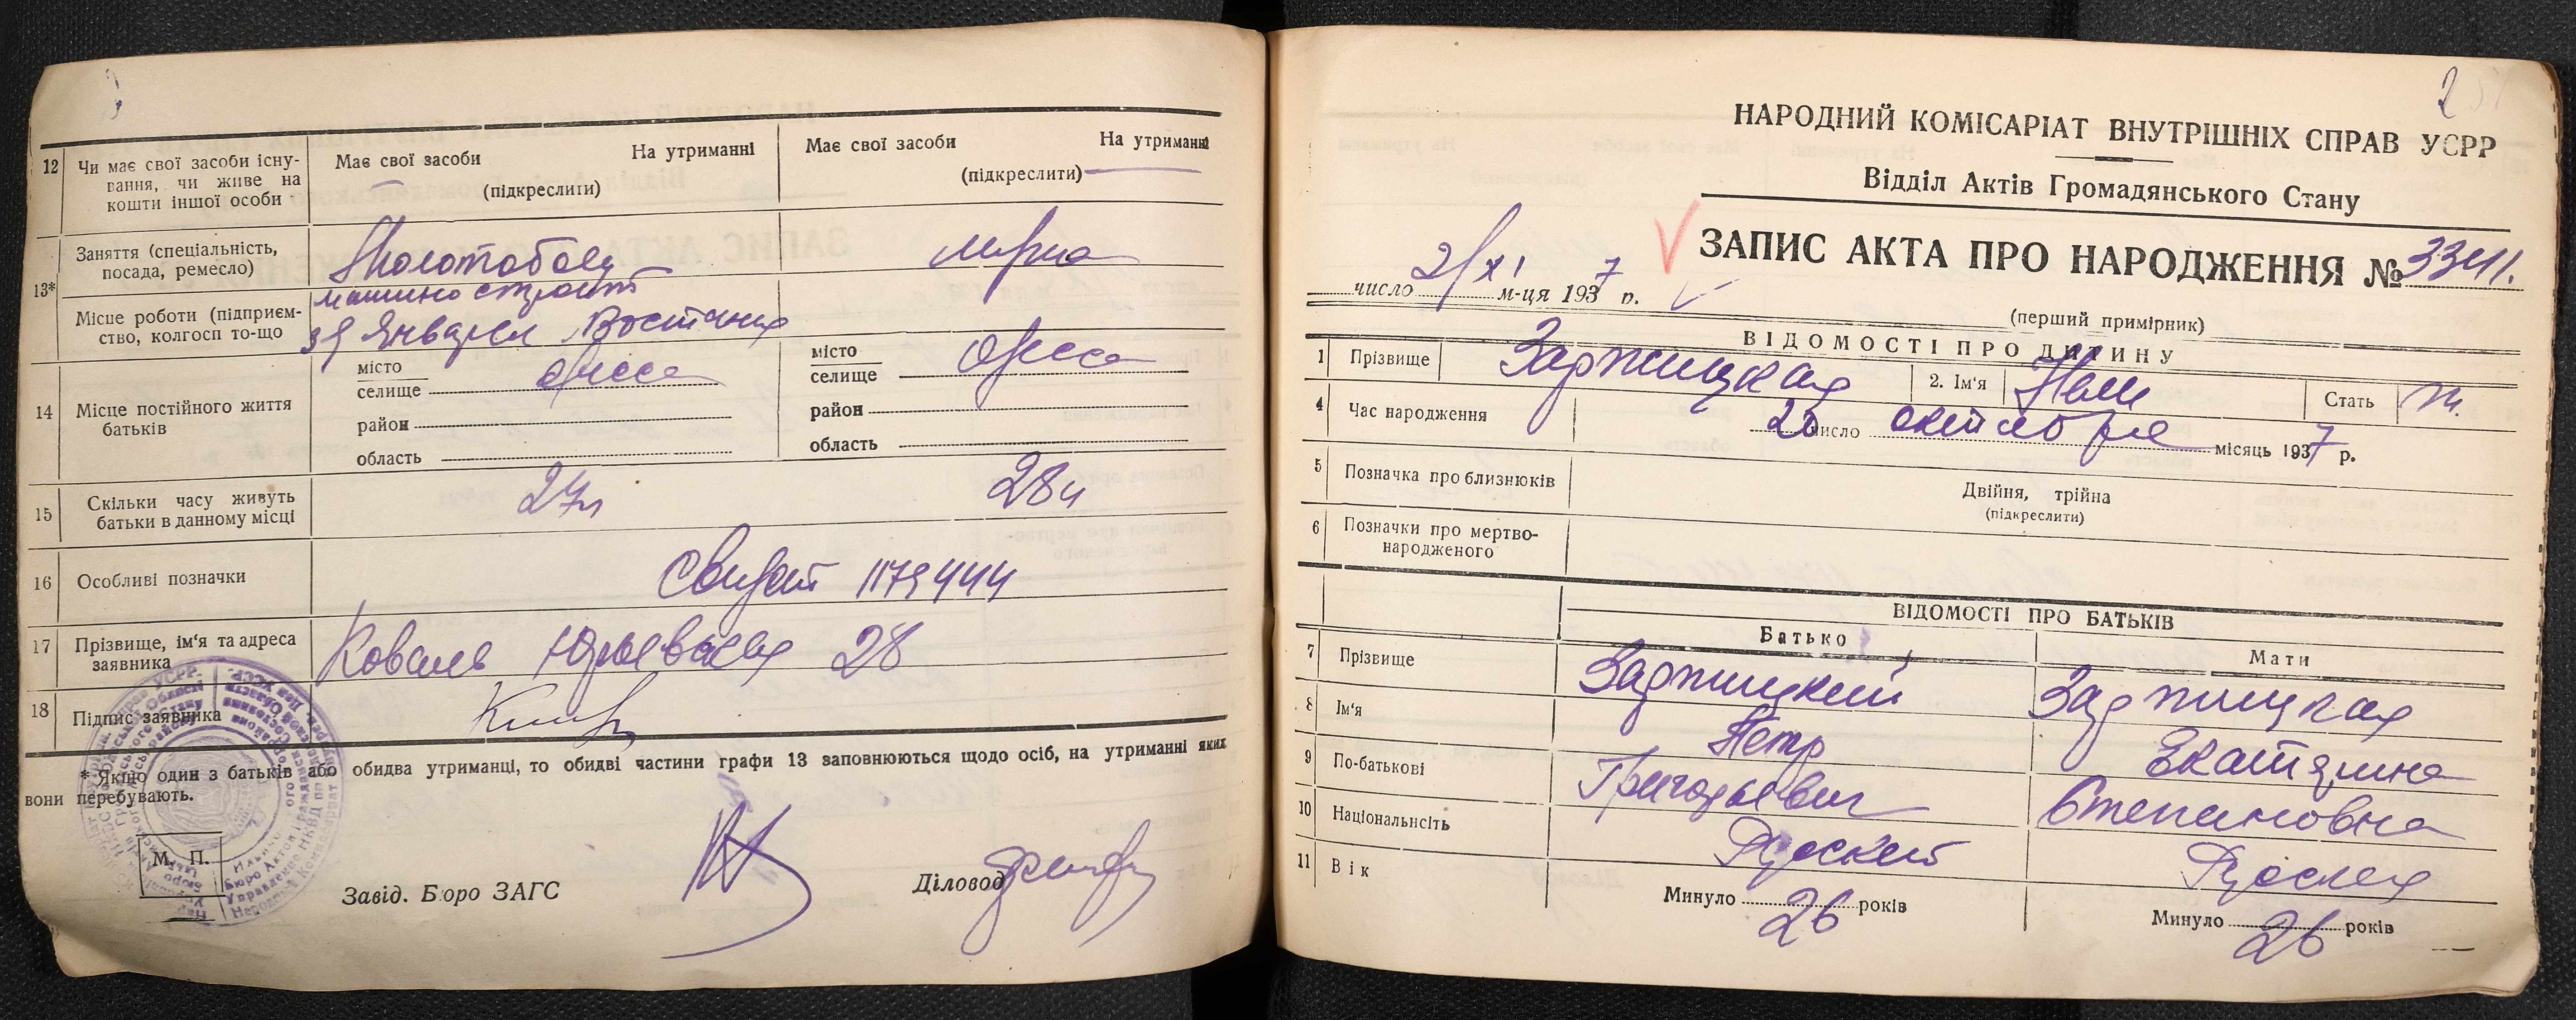 12 Чи має свої засоби існу-
вання, чи живе на
кошти іншої особи
Має свої засоби На утриманні
(підкреслити)
Має свої засоби На утриманні
(підкреслити)
13* Заняття (спеціальність,
посада, ремесло)
Молотобоец
Місце роботи (підприєм-
ство, колгосп то-що
машиностроит
з9 Января Востания
14 Місце постійного життя
батьків
місто
селище Одесса
район
область
місто
селище Одесса
район
область
15 Скільки часу живуть
батьки в данному місці
27л
28л
16 Особливі позначки
Свидет 1179444
17 Прізвище, ім'я та адреса
заявника
Коваль Юрьевская 28
18 Підпис заявника
* Якщо один з батьків або обидва утриманці, то обидві частини графи 13 заповнюються щодо осіб, на утриманні яких
вони перебувають.
М. П.
Завід. Бюро ЗАГС
Діловод
2
НАРОДНИЙ КОМІСАРІАТ ВНУТРІШНІХ СПРАВ УСРР
Відділ Актів Громадянського Стану
ЗАПИС АКТА ПРО НАРОДЖЕННЯ № 3341.
число 21 XI м-ця 1937 р.
(перший примірник)
ВІДОМОСТІ ПРО ДИТИНУ
1 Прізвище Заржицкая 2. Ім'я Нели Стать ж.
4 Час народження 20 число октября місяць 1937 р.
5 Позначка про близнюків Двійня, трійна
(підкреслити)
6 Позначки про мертво-
народженого
ВІДОМОСТІ ПРО БАТЬКІВ
Батько Мати
7 Прізвище Заржицкий Заржицкая
8 Ім'я Петр Екатерина
9 По-батькові Григорьевич Степановна
10 Національність Русский Русская
11 Вік Минуло 26 років Минуло 26 років